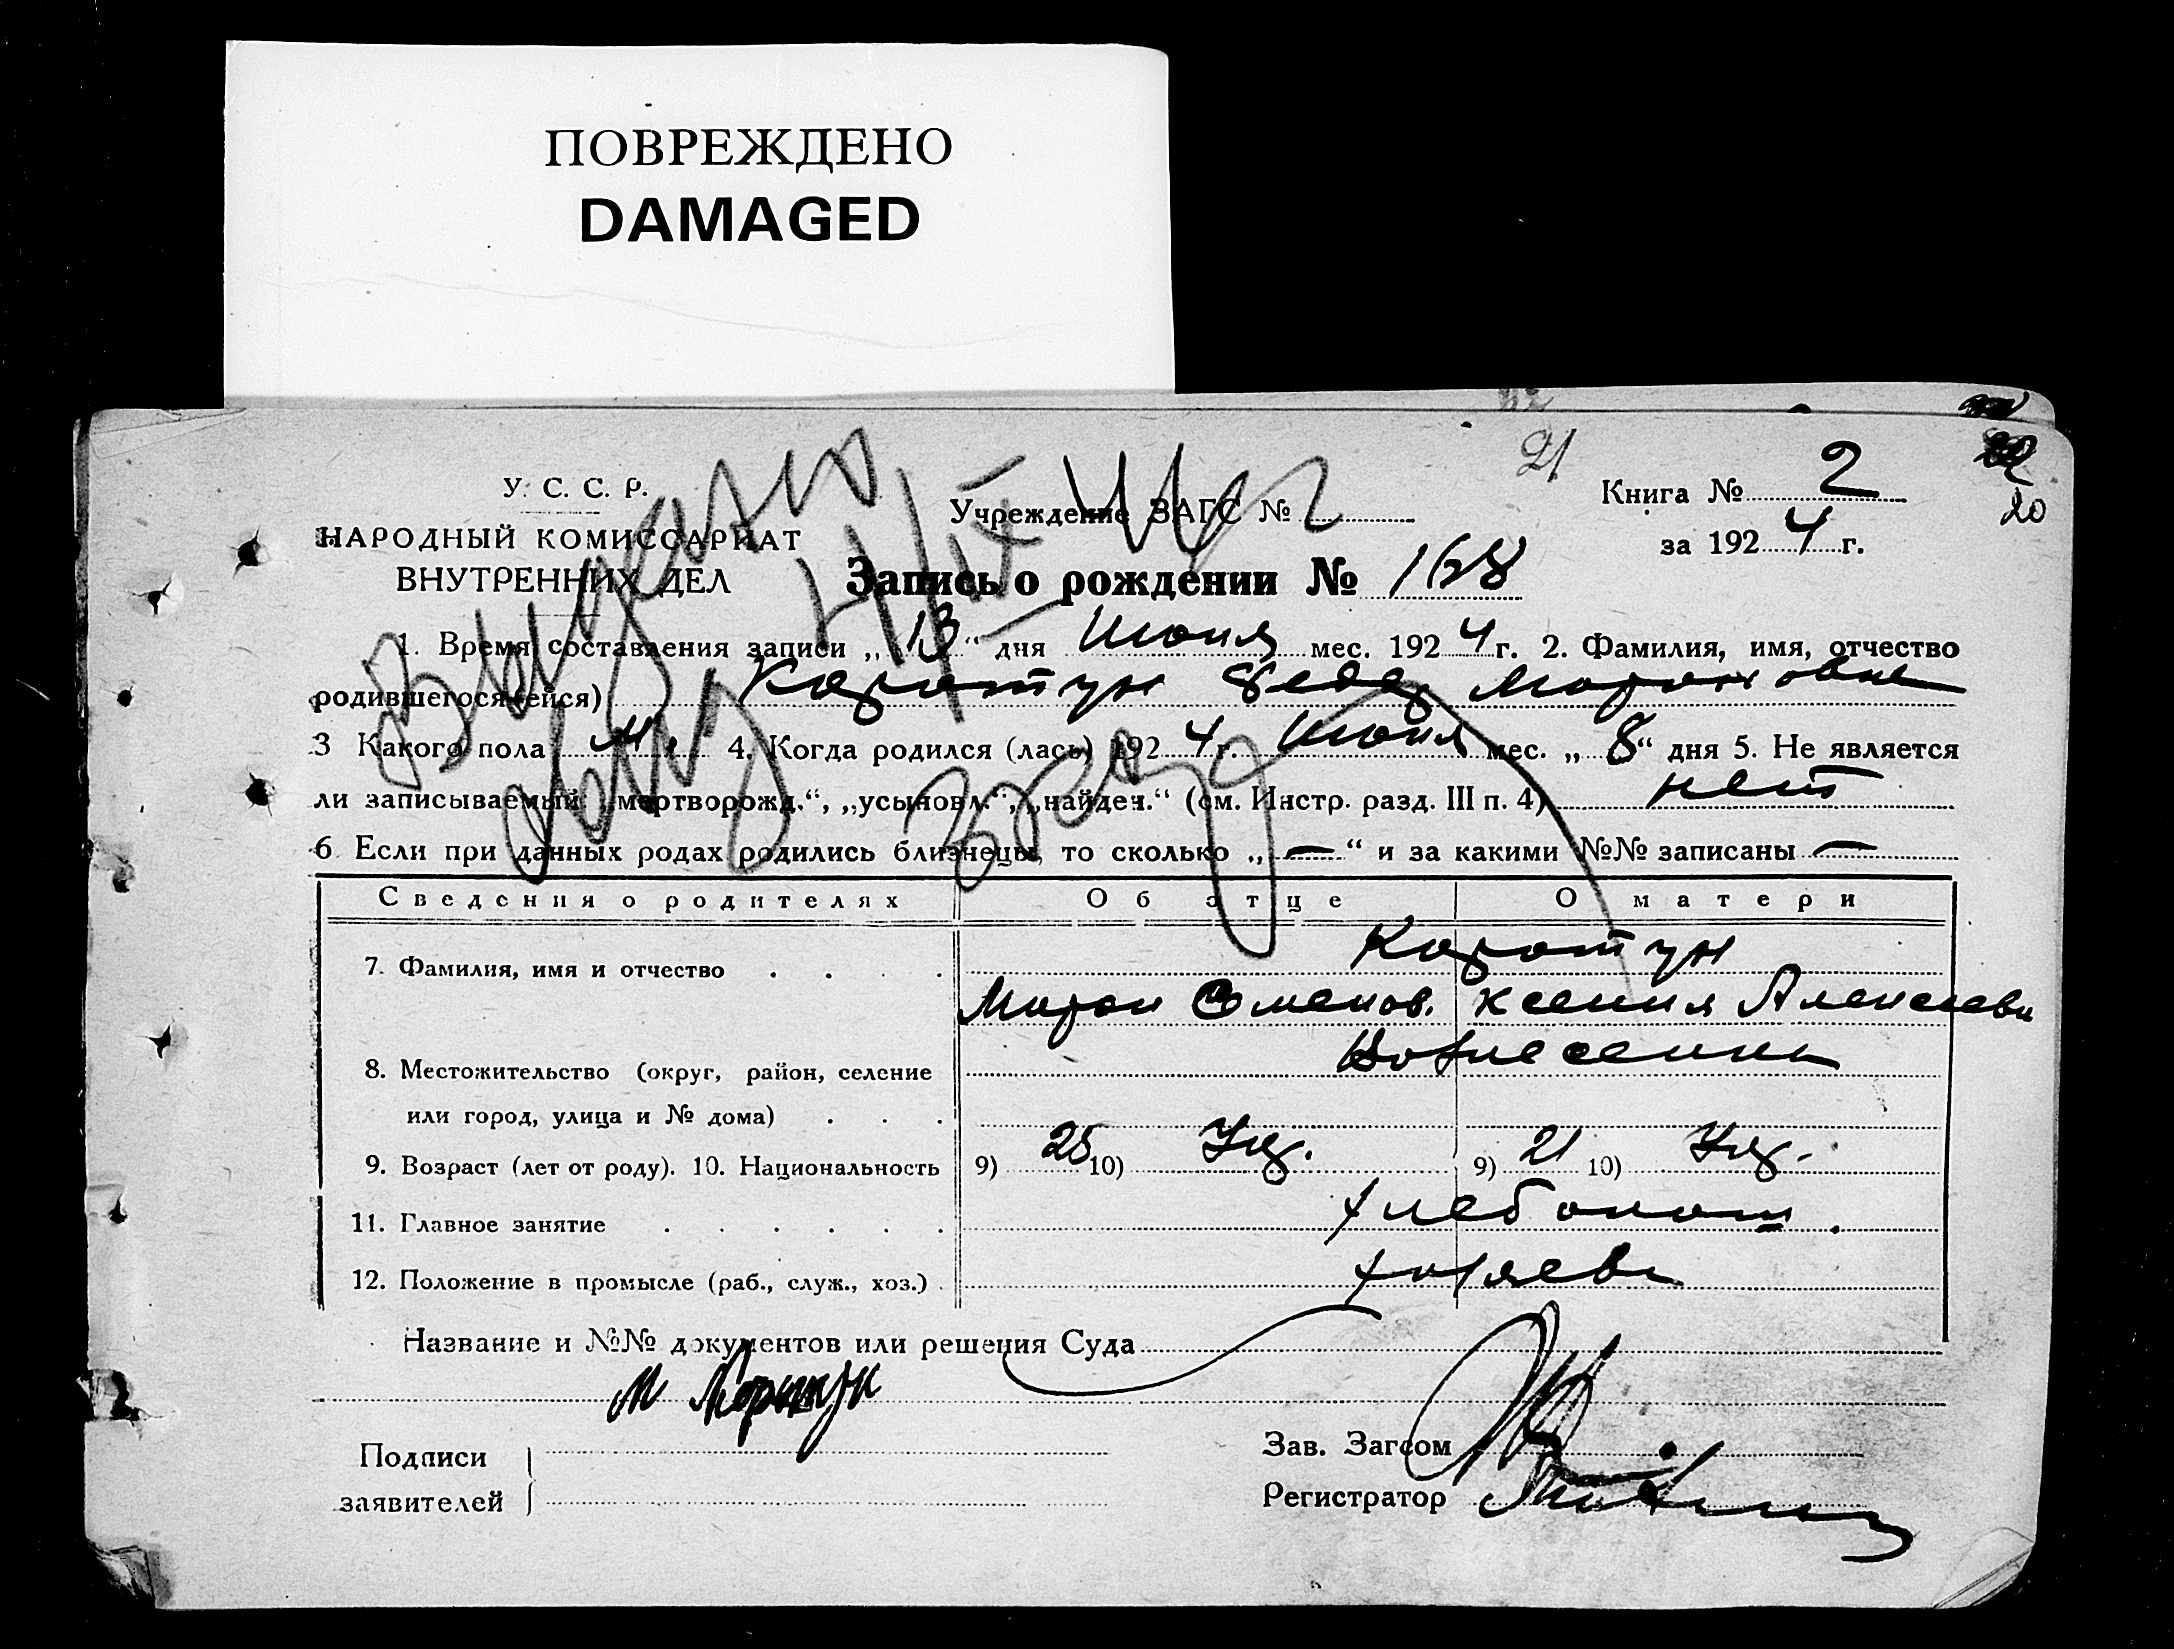 ПОВРЕЖДЕНО
DAMAGED
21
20
У. С. С. Р.
НАРОДНЫЙ КОМИССАРИАТ
ВНУТРЕННИХ ДЕЛ
Учреждение ЗАГС №
Книга № 2
за 1924 г.
Запись о рождении № 168
Выдано
1. Время составления записи „13“ дня Июня мес. 1924 г. 2. Фамилия, имя, отчество
родившегося(ейся) Коротун Федор Миронович
3 Какого пола м. 4. Когда родился (лась) 1924 г. Июня мес. „8“ дня 5. Не является
ли записываемый „мертворожд.“, „усыновл.“, „найден.“ (см. Инстр. разд. III п. 4) нет
6 Если при данных родах родились близнецы, то сколько „—“ и за какими №№ записаны —
Сведения о родителях Об отце О матери
7. Фамилия, имя и отчество Коротун
Мирон Семенов. Ксения Алексеевн
8. Местожительство (округ, район, селение Вознесенки
или город, улица и № дома)
9. Возраст (лет от роду). 10. Национальность 9) 25 10) Укр. 9) 21 10) Укр.
11. Главное занятие хлебопаш.
12. Положение в промысле (раб., служ., хоз.) хозяева
Название и №№ документов или решения Суда
М Коротун
Подписи
заявителей
Зав. Загсом
Регистратор